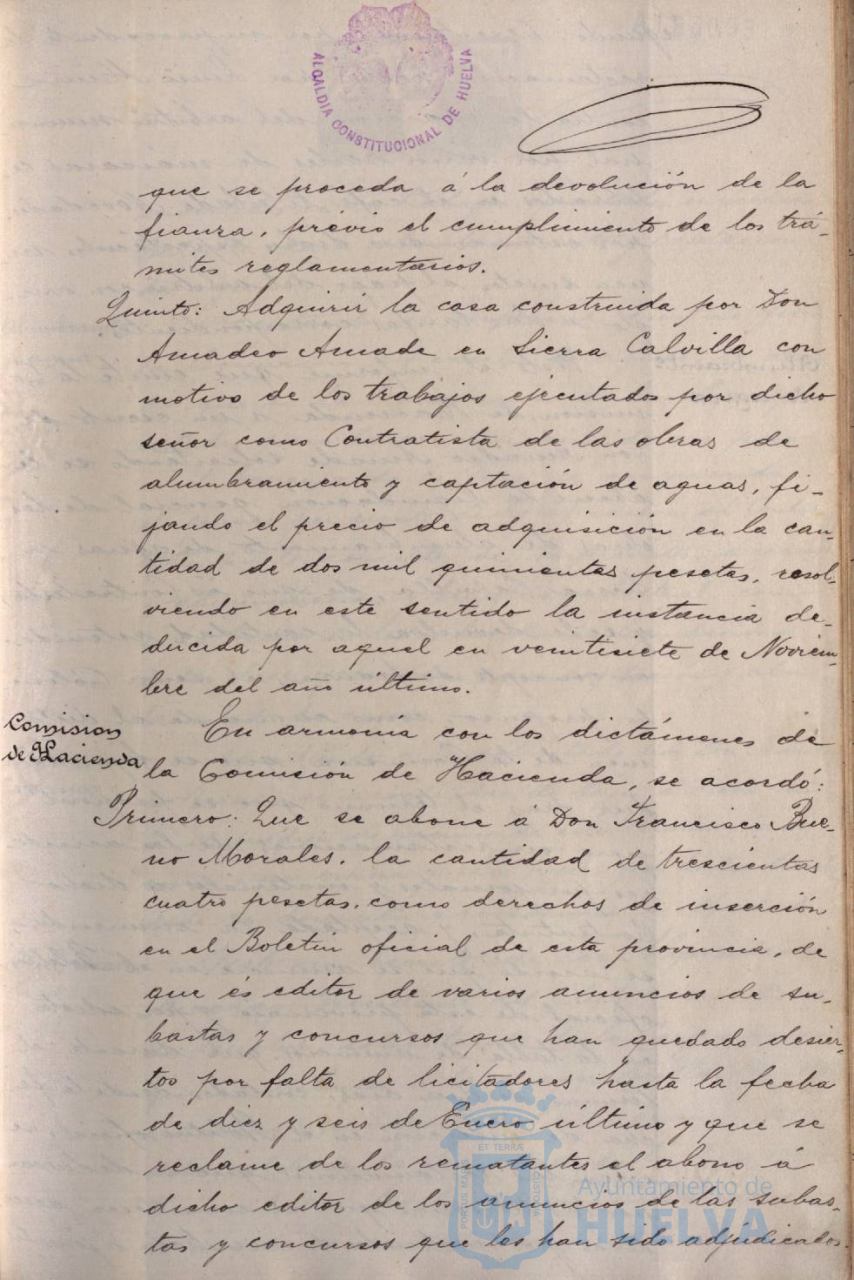 ALCALDIA CONSTITUCIONAL DE HUELVA
que se proceda á la devolución de la
fianza, prévio el cumplimiento de los trá-
mites reglamentarios.
Quinto: Adquirir la casa construida por Don
Amadeo Amade en Sierra Calvilla con
motivo de los trabajos ejecutados por dicho
señor como Contratista de las obras de
alumbramiento y captación de aguas, fi-
jando el precio de adquisición en la can-
tidad de dos mil quinientas pesetas, resol-
viendo en este sentido la instancia de-
ducida por aquel en veintisiete de Noviem-
bre del año último.
Comision
de Hacienda
En armonía con los dictámenes de
la Comisión de Hacienda, se acordó:
Primero: Que se abone á Don Francisco Bue-
no Morales, la cantidad de trescientas
cuatro pesetas, como derechos de inserción
en el Boletin oficial de esta provincia, de
que és editor de varios anuncios de su-
bastas y concursos que han quedado desier-
tos por falta de licitadores hasta la fecha
de diez y seis de Enero último y que se
reclame de los rematantes el abono á
dicho editor de los anuncios de las subas-
tas y concursos que les han sido adjudicados
ET TERRÆ
Ayuntamiento de
HUELVA